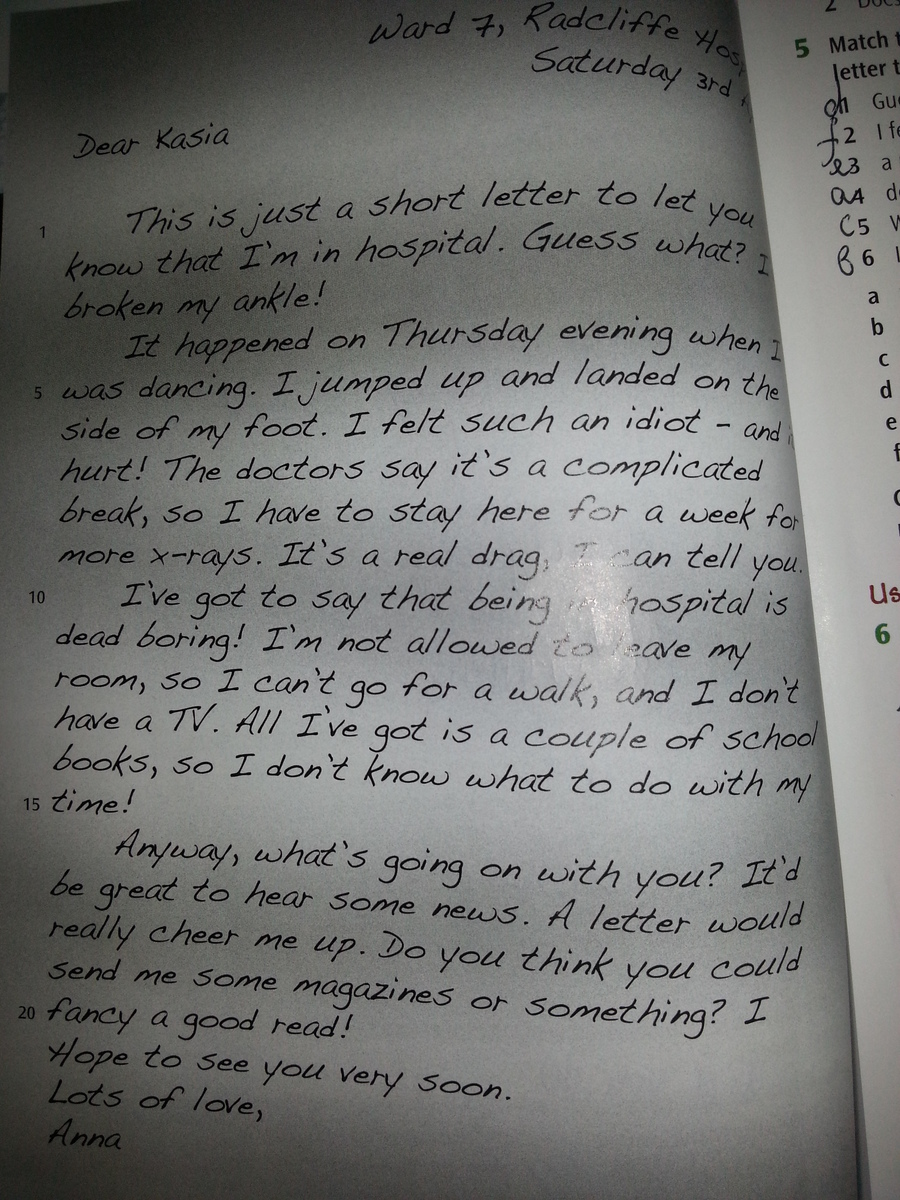 Ward 7, Radcliffe
Saturday 3rd
Dear Kasia
1 This is just a short letter to let you
know that I'm in hospital. Guess what? I
broken my ankle!
It happened on Thursday evening when I
5 was dancing. I jumped up and landed on the
side of my foot. I felt such an idiot - and
hurt! The doctors say it's a complicated
break, so I have to stay here for a week for
more x-rays. It's a real drag, I can tell you.
10 I've got to say that being in hospital is
dead boring! I'm not allowed to leave my
room, so I can't go for a walk, and I don't
have a TV. All I've got is a couple of school
books, so I don't know what to do with my
15 time!
Anyway, what's going on with you? It'd
be great to hear some news. A letter would
really cheer me up. Do you think you could
send me some magazines or something? I
20 fancy a good read!
Hope to see you very soon.
Lots of love,
Anna
2
5 Match
letter
1
f 2 I
e 3 a
a 4
c 5
b 6
a
b
c
d
e
6